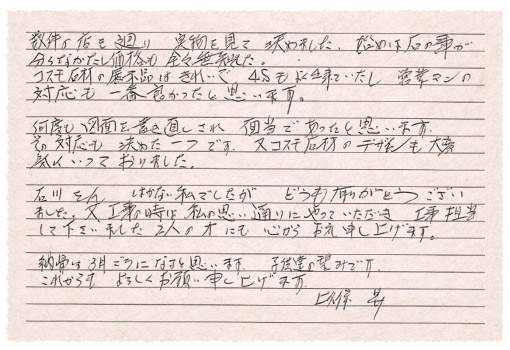 数件の店を廻り 実物を見て 決めました。 始めは石の事が
分らなかたし価格も 全々
コスモ石材の展示品はきれいで 4Sも 出来ていたし 営業マンの
対応も 一番 良かったと 思います。
何度も 図面を書き直しされ 面当であったと思います。
その対応も 決めた一つです。 又コスモ石材のデザインも大変
気にいっておりました。
石川さん 私でしたが どうも有りがとう ござい
ました。又工事の時は 私の思い通りにやっていただき 工事担当
して下さいました 2人の方にも 心から お礼申し上げます。
納骨は3月ごろになると思います。 子供達の望みです。
これからも よろしくお願い申し上げます。